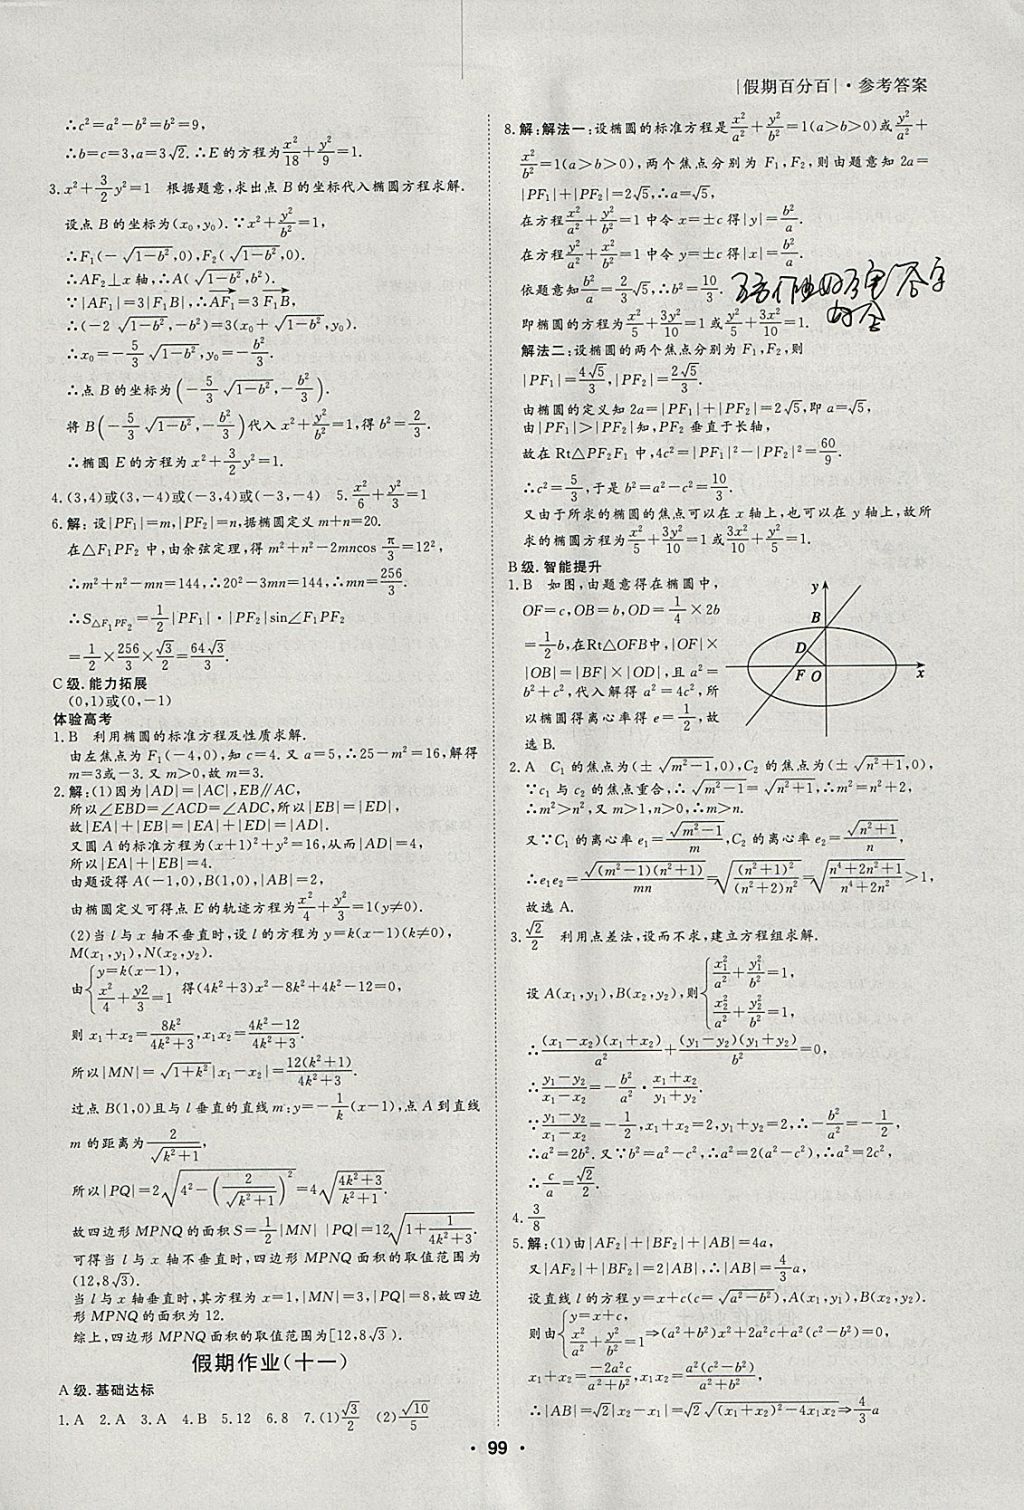 |假期百分百|·参考答案
∴c²=a²-b²=b²=9,
∴b=c=3,a=3√2.∴E的方程为x²/18+y²/9=1.
3.x²+3/2y²=1 根据题意,求出点B的坐标代入椭圆方程求解.
设点B的坐标为(x₀,y₀).∵x²+y²/b²=1,
∴F₁(-√(1-b²),0),F₂(√(1-b²),0).
∵AF₂⊥x轴,∴A(√(1-b²),b²).
∵|AF₁|=3|F₁B|,∴AF₁=3F₁B,
∴(-2√(1-b²),-b²)=3(x₀+√(1-b²),y₀).
∴x₀=-5/3√(1-b²),y₀=-b²/3.
∴点B的坐标为(-5/3√(1-b²),-b²/3).
将B(-5/3√(1-b²),-b²/3)代入x²+y²/b²=1,得b²=2/3.
∴椭圆E的方程为x²+3/2y²=1.
4.(3,4)或(3,-4)或(-3,4)或(-3,-4) 5.x²/6+y²/3=1
6.解:设|PF₁|=m,|PF₂|=n,据椭圆定义m+n=20.
在△F₁PF₂中,由余弦定理,得m²+n²-2mncosπ/3=12²,
∴m²+n²-mn=144,∴20²-3mn=144,∴mn=256/3.
∴S△F₁PF₂=1/2|PF₁|·|PF₂|sin∠F₁PF₂
=1/2×256/3×√3/2=64√3/3.
C级.能力拓展
(0,1)或(0,-1)
体验高考
1.B 利用椭圆的标准方程及性质求解.
由左焦点为F₁(-4,0),知c=4.又a=5,∴25-m²=16,解得
m=3或-3.又m>0,故m=3.
2.解:(1)因为|AD|=|AC|,EB∥AC,
所以∠EBD=∠ACD=∠ADC,所以|EB|=|ED|,
故|EA|+|EB|=|EA|+|ED|=|AD|.
又圆A的标准方程为(x+1)²+y²=16,从而|AD|=4,
所以|EA|+|EB|=4.
由题设得A(-1,0),B(1,0),|AB|=2,
由椭圆定义可得点E的轨迹方程为x²/4+y²/3=1(y≠0).
(2)当l与x轴不垂直时,设l的方程为y=k(x-1)(k≠0),
M(x₁,y₁),N(x₂,y₂).
由{y=k(x-1), x²/4+y2/3=1 得(4k²+3)x²-8k²+4k²-12=0,
则x₁+x₂=8k²/(4k²+3),x₁x₂=(4k²-12)/(4k²+3).
所以|MN|=√(1+k²)|x₁-x₂|=12(k²+1)/(4k²+3).
过点B(1,0)且与l垂直的直线m:y=-1/k(x-1),点A到直线
m的距离为2/√(k²+1),
所以|PQ|=2√(4²-(2/√(k²+1))²)=4√((4k²+3)/(k²+1)).
故四边形MPNQ的面积S=1/2|MN| |PQ|=12√(1+1/(4k²+3)).
可得当l与x轴不垂直时,四边形MPNQ面积的取值范围为
(12,8√3).
当l与x轴垂直时,其方程为x=1,|MN|=3,|PQ|=8,故四边
形MPNQ的面积为12.
综上,四边形MPNQ面积的取值范围为[12,8√3).
假期作业(十一)
A级.基础达标
1.A 2.A 3.A 4.B 5.12 6.8 7.(1)√3/2 (2)√10/5
8.解:解法一:设椭圆的标准方程是x²/a²+y²/b²=1(a>b>0)或y²/a²+
x²/b²=1(a>b>0),两个焦点分别为F₁,F₂,则由题意知2a=
|PF₁|+|PF₂|=2√5,∴a=√5,
在方程x²/a²+y²/b²=1中令x=±c得|y|=b²/a.
在方程y²/a²+x²/b²=1中令y=±c得|x|=b²/a.
依题意知b²/a=2/3√5,∴b²=10/3.
即椭圆的方程为x²/5+3y²/10=1或y²/5+3x²/10=1.
解法二:设椭圆的两个焦点分别为F₁,F₂,则
|PF₁|=4√5/3,|PF₂|=2√5/3.
由椭圆的定义知2a=|PF₁|+|PF₂|=2√5,即a=√5,
由|PF₁|>|PF₂|知,PF₂垂直于长轴,
故在Rt△PF₂F₁中,4c²=|PF₁|²-|PF₂|²=60/9.
∴c²=5/3,于是b²=a²-c²=10/3.
又由于所求的椭圆的焦点可以在x轴上,也可以在y轴上,故所
求的椭圆方程为x²/5+3y²/10=1或3x²/10+y²/5=1.
B级.智能提升
1.B 如图,由题意得在椭圆中,
OF=c,OB=b,OD=1/4×2b
=1/2b,在Rt△OFB中,|OF|×
|OB|=|BF|×|OD|,且a²=
b²+c²,代入解得a²=4c²,所
以椭圆得离心率得e=1/2,故
选B.
y
B
D
F O
x
2.A C₁的焦点为(±√(m²-1),0),C₂的焦点为(±√(n²+1),0),
∵c₁与c₂的焦点重合,∴√(m²-1)=√(n²+1),∴m²=n²+2,
∴m²>n²,又m>1,n>0,∴m>n.
又∵C₁的离心率e₁=√(m²-1)/m,C₂的离心率e₂=√(n²+1)/n,
∴e₁e₂=√((m²-1)(n²+1))/mn=√((n²+1)²/((n²+2)n²))=√((n⁴+2n²+1)/(n⁴+2n²))>1,
故选A.
3.√2/2 利用点差法,设而不求,建立方程组求解.
设A(x₁,y₁),B(x₂,y₂),则{x₁²/a²+y₁²/b²=1, x₂²/a²+y₂²/b²=1,
∴(x₁-x₂)(x₁+x₂)/a²+(y₁-y₂)(y₁+y₂)/b²=0,
∴(y₁-y₂)/(x₁-x₂)=-b²/a²·(x₁+x₂)/(y₁+y₂).
∵(y₁-y₂)/(x₁-x₂)=-1/2,x₁+x₂=2,y₁+y₂=2,∴-b²/a²=-1/2,
∴a²=2b².又∵b²=a²-c²,∴a²=2(a²-c²),∴a²=2c²,
∴c/a=√2/2.
4.3/8
5.解:(1)由|AF₂|+|BF₂|+|AB|=4a,
又|AF₂|+|BF₂|=2|AB|,∴|AB|=4/3a,
设直线l的方程y=x+c(c=√(a²-b²)),A(x₁,y₁),B(x₂,y₂).
则由{y=x+c, x²/a²+y²/b²=1⇒(a²+b²)x²+2a²c+a²(c²-b²)=0,
x₁+x₂=-2a²c/(a²+b²),x₁x₂=a²(c²-b²)/(a²+b²).
∴|AB|=√2|x₂-x₁|=√2√((x₁+x₂)²-4x₁x₂)⇒4/3a
·99·